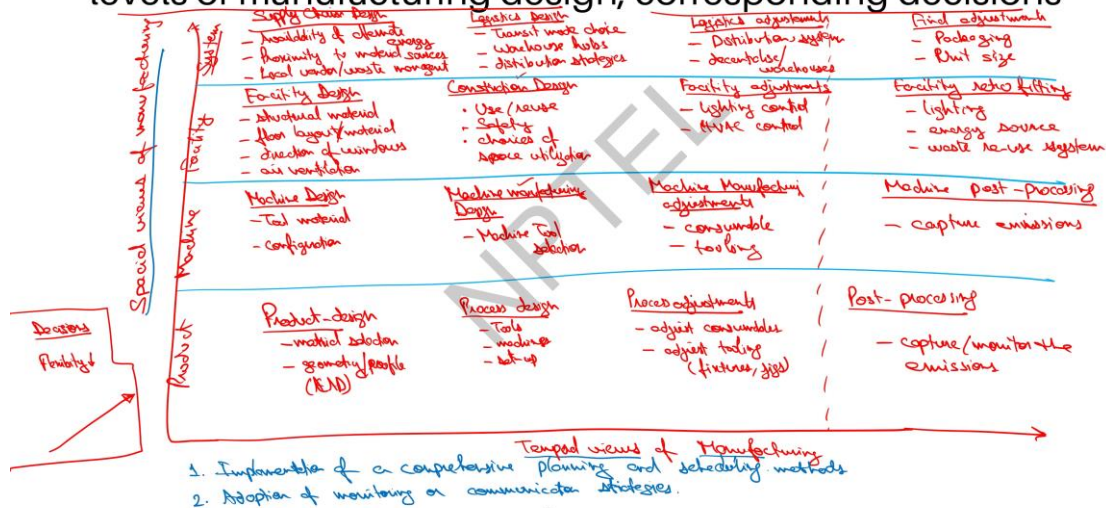 levels of manufacturing design, corresponding decisions
Supply Chain Design
- Availability of alternate energy
- Proximity to material sources
- Local vendor/waste managent
Logistics Design
- Transit mode choice
- Warehouse hubs
- distribution strategies
Logistics adjustments
- Distribution system
- decentralise/warehouses
Final adjustments
- Packaging
- Unit size
System
Facility Design
- structural material
- floor layout/material
- direction of windows
- air ventilation
Construction Design
• Use/reuse
• Safety
• choices of
space utilization
Facility adjustments
- lighting control
- HVAC control
Facility retro fitting
- lighting
- energy source
- waste re-use system
Facility
Machine Design
- Tool material
- configuration
Machine manufacturing
Design
- Machine Tool
selection
Machine Manufacturing
adjustments
- consumable
- tooling
Machine post-processing
- capture emissions
Machine
Product-design
- material selection
- geometry/profile
Process design
- Tools
- machines
- set-up
Process adjustments
- adjust consumables
- adjust tooling
(fixtures, jigs)
Post-processing
- capture/monitor the
emissions
Product
Spacial views of manufacturing
Decisions
Flexibility↓
NPTEL
Temporal views of Manufacturing
1. Implementation of a comprehensive planning and scheduling methods
2. Adoption of monitoring or communication strategies.